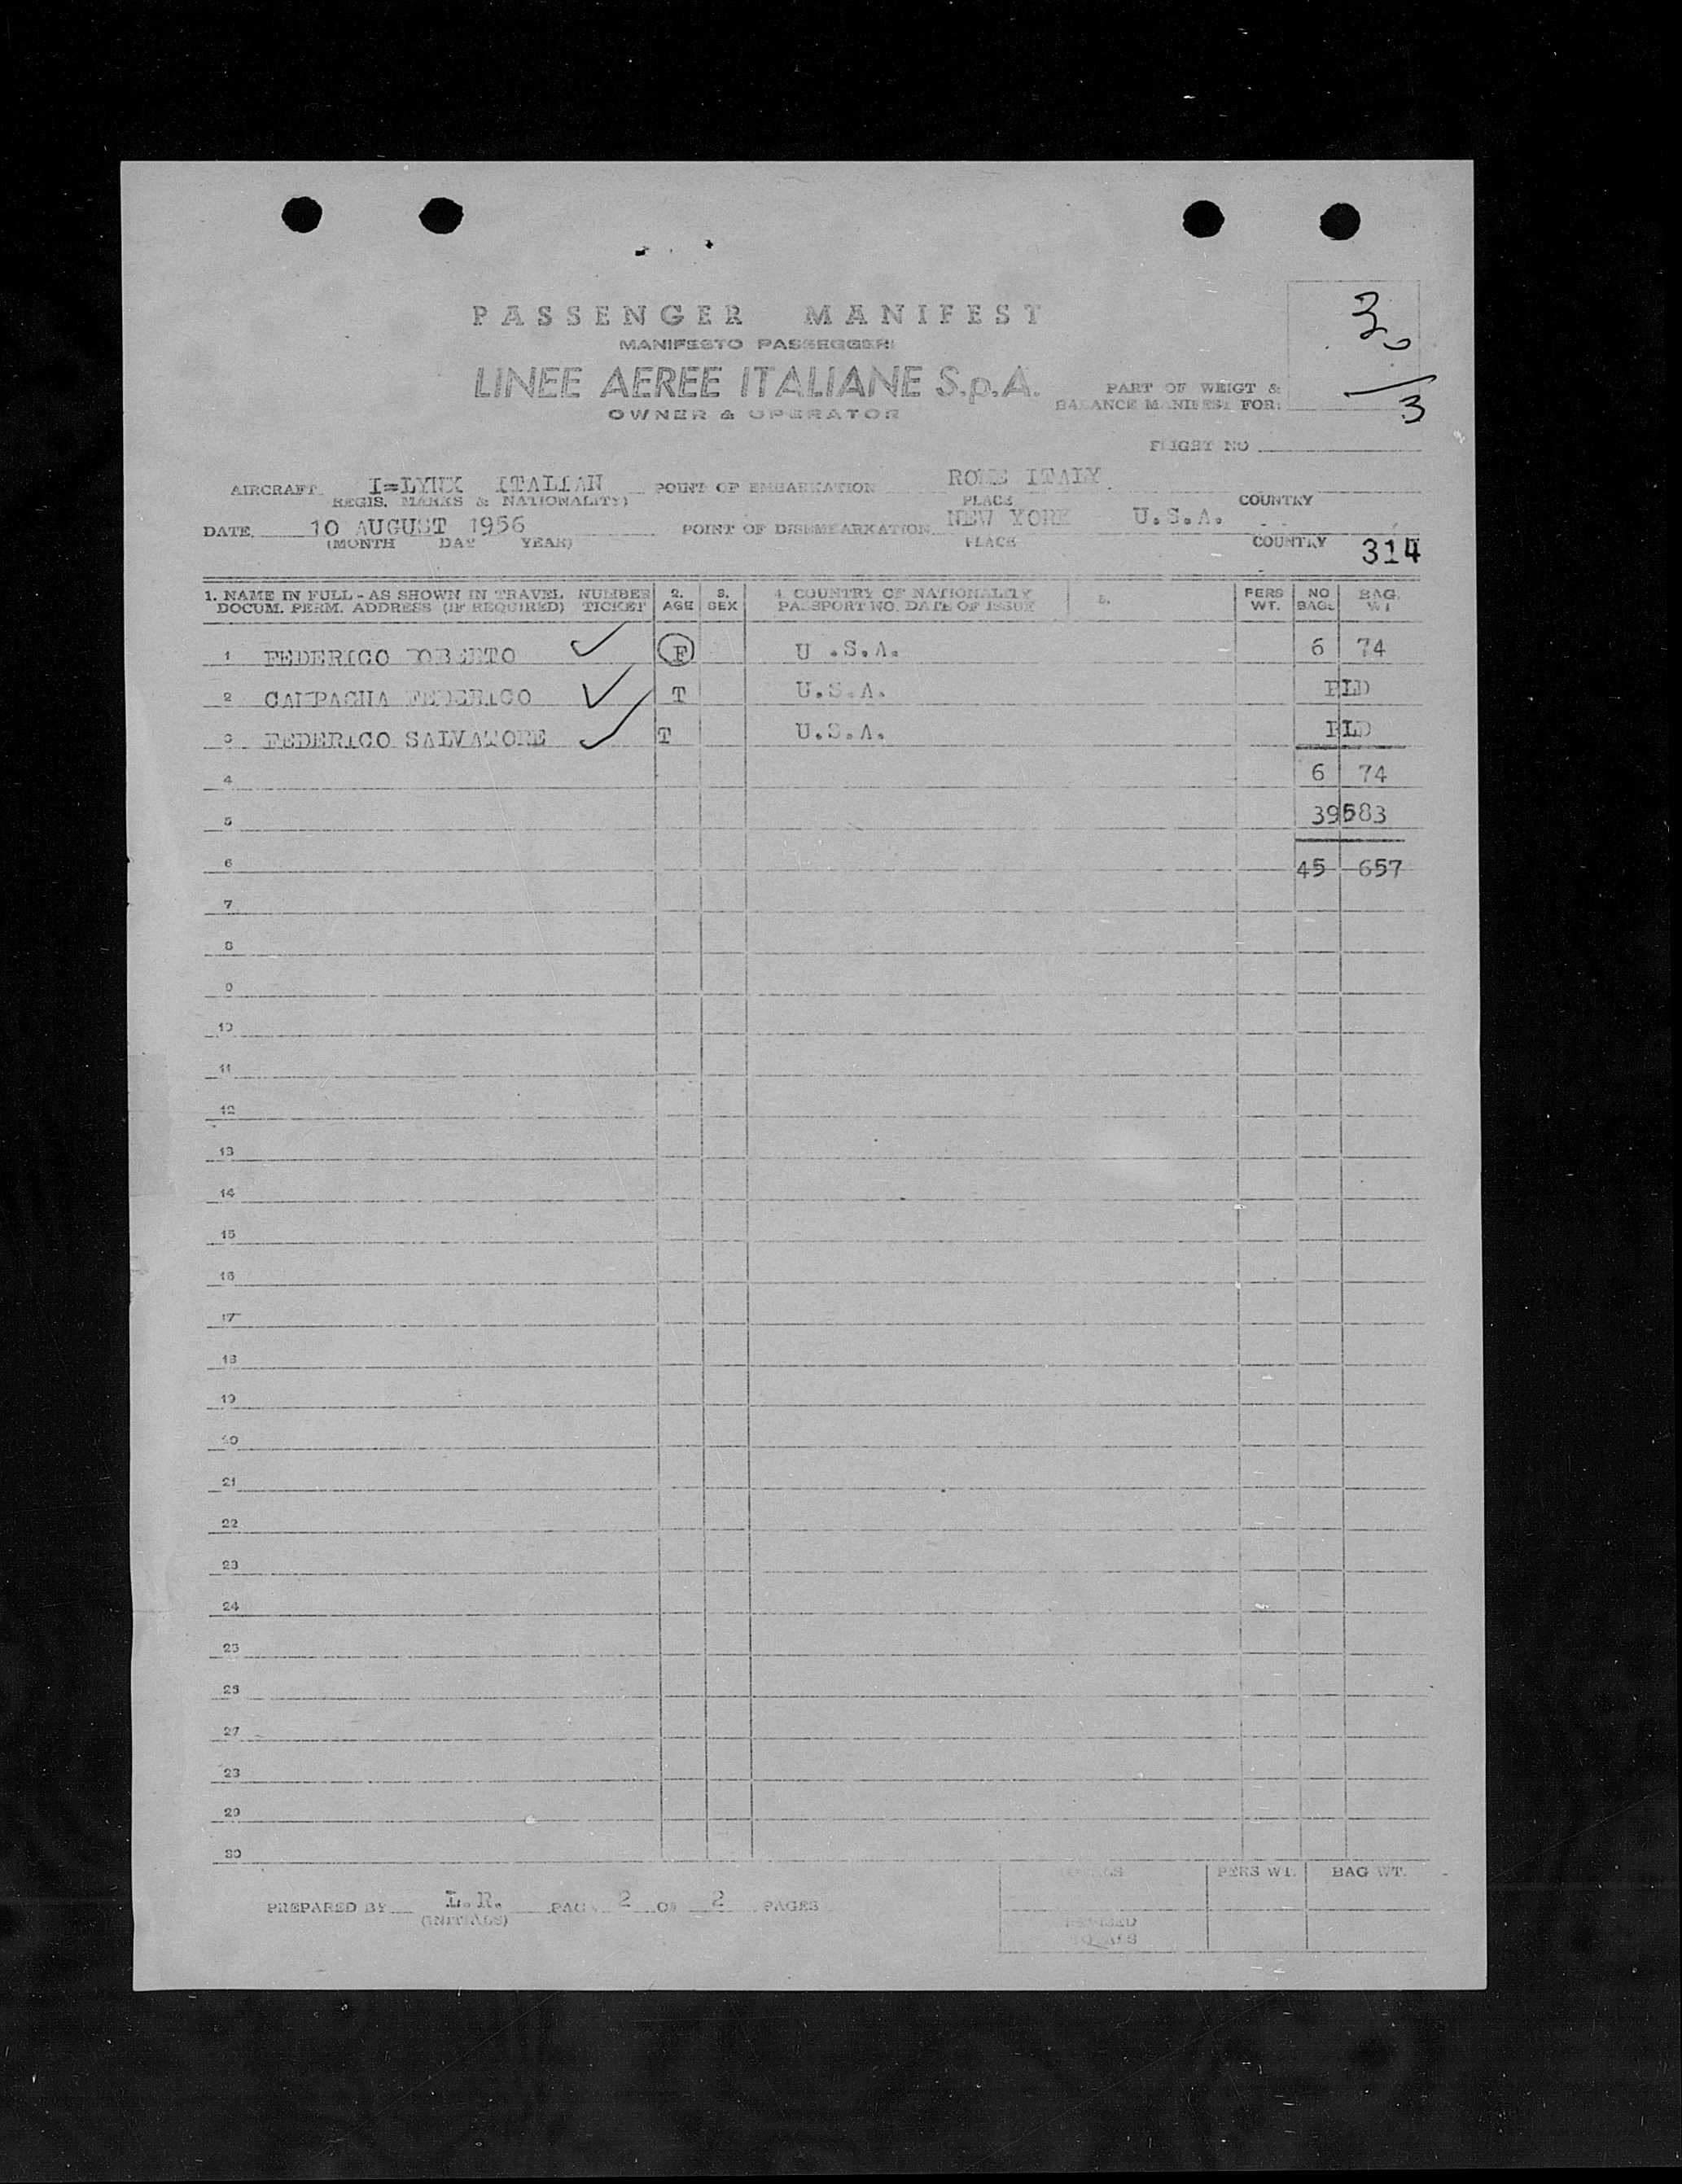 PASSENGER MANIFEST
MANIFESTO PASSEGGERI
LINEE AEREE ITALIANE S.p.A.
OWNER & OPERATOR
PART OF WEIGT &
BALANCE MANIFEST FOR:
3
3
FLIGHT NO
AIRCRAFT I=LYNX ITALIAN POINT OF EMBARKATION ROME ITALY
REGIS. MARKS & NATIONALITY) PLACE COUNTRY
DATE 10 AUGUST 1956 POINT OF DISEMBARKATION NEW YORK U.S.A.
(MONTH DAY YEAR) PLACE COUNTRY 314
1. NAME IN FULL - AS SHOWN IN TRAVEL NUMBER 2. 3. 4. COUNTRY OF NATIONALITY 5. PERS NO BAG.
DOCUM. PERM. ADDRESS (IF REQUIRED) TICKET AGE SEX PASSPORT NO. DATE OF ISSUE WT. BAGS WT
1 FEDERICO ROBERTO F U .S.A. 6 74
2 CAMPAGNA FEDERICO T U.S.A. PLD
3 FEDERICO SALVATORE T U.S.A. PLD
4 6 74
5 39583
6 45 657
7
8
9
10
11
12
13
14
15
16
17
18
19
20
21
22
23
24
25
26
27
28
29
30
TOTALS PERS WT. BAG WT.
PREPARED BY L.R. PAGE 2 OF 2 PAGES
(INITIALS)
REVISED
TOTALS